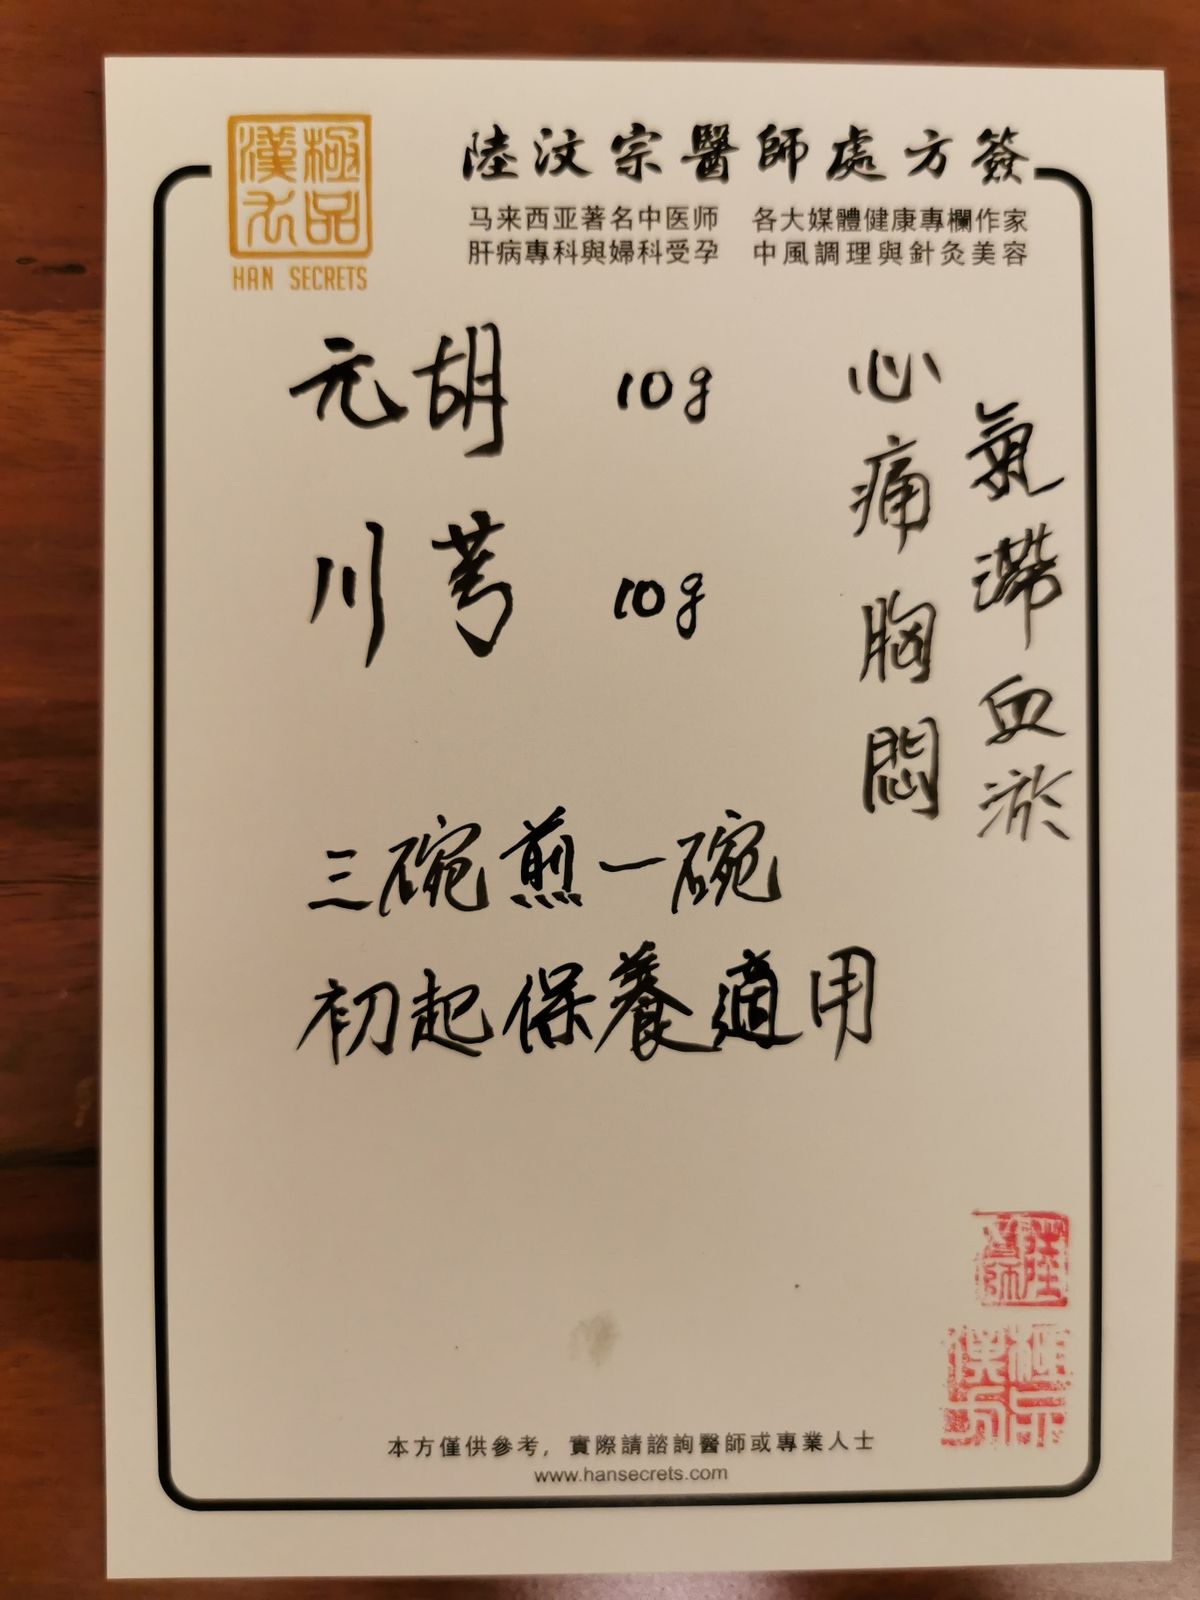 極品漢方
HAN SECRETS
陸汶宗醫師處方簽
马来西亚著名中医师 各大媒體健康專欄作家
肝病專科與婦科受孕 中風調理與針灸美容
元胡 10g
川芎 10g
氣滯血淤
心痛胸悶
三碗煎一碗
初起保養適用
陸醫師
本方僅供參考，實際請諮詢醫師或專業人士
www.hansecrets.com